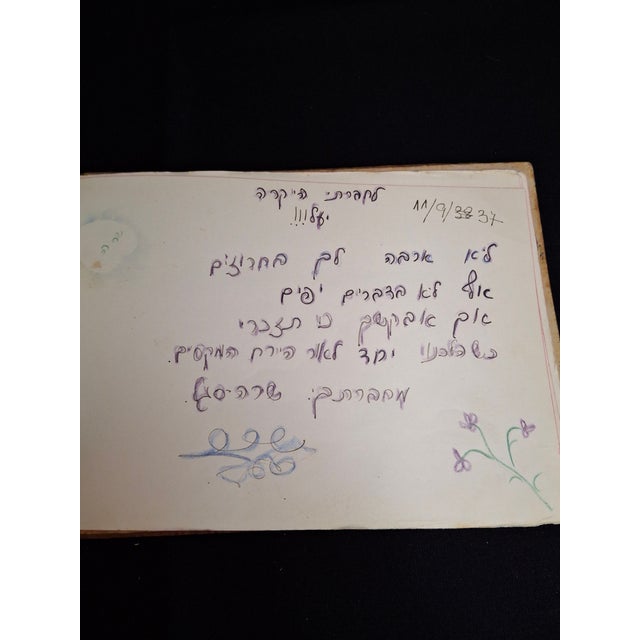 לחברתי היקרה
יעל!!!
11/9/3837
לא ארבה לך בחרוזים
אף לא בדברים יפים
אך אבקשך כי תזכרי
כשהלכנו יחד לאור הירח המקסים.
מחברתך: שרה סגל.